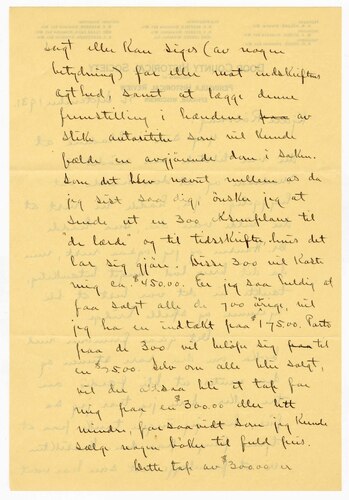 sagt eller kan siges (av nogen
betydning) for eller mot indskriftens
ægthed, samt at lægge denne
fremstilling i hænderne paa av
slike autoriteter som vil kunde
fælde en avgjørende dom i saken.
Som det blev nævnt mellem os da
jeg sist saa dig, ønsker jeg at
sende ut en 300 eksemplarer til
"de lærde" og til tidsskifter, hvis det
lar sig gjøre. Disse 300 vil koste
mig ca $450.00. Er jeg saa heldig at
faa solgt alle de 700 øvrige, vil
jeg ha en indtækt paa $175.00. Porto
paa de 300 vil beløpe sig paa til
en $75.00. Selv om alle blir solgt,
vil der altsaa bli et tap for
mig paa en $300.00 eller litt
mindre, forsaavidt som jeg kunde
sælge nogen bøker til fuld pris.
Dette tap av $300.00 er